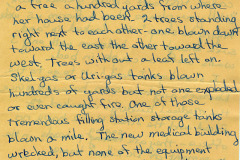 a tree a hundred yards from where
her house had been. 2 trees standing
right next to each other - one blown down
toward the east the other toward the
west. Trees without a leaf left on.
Skelgas or Urigas tanks blown
hundreds of yards but not one exploded
or even caught fire. One of those
tremendous filling station storage tanks
blown a mile. The new medical building
wrecked, but none of the equipment